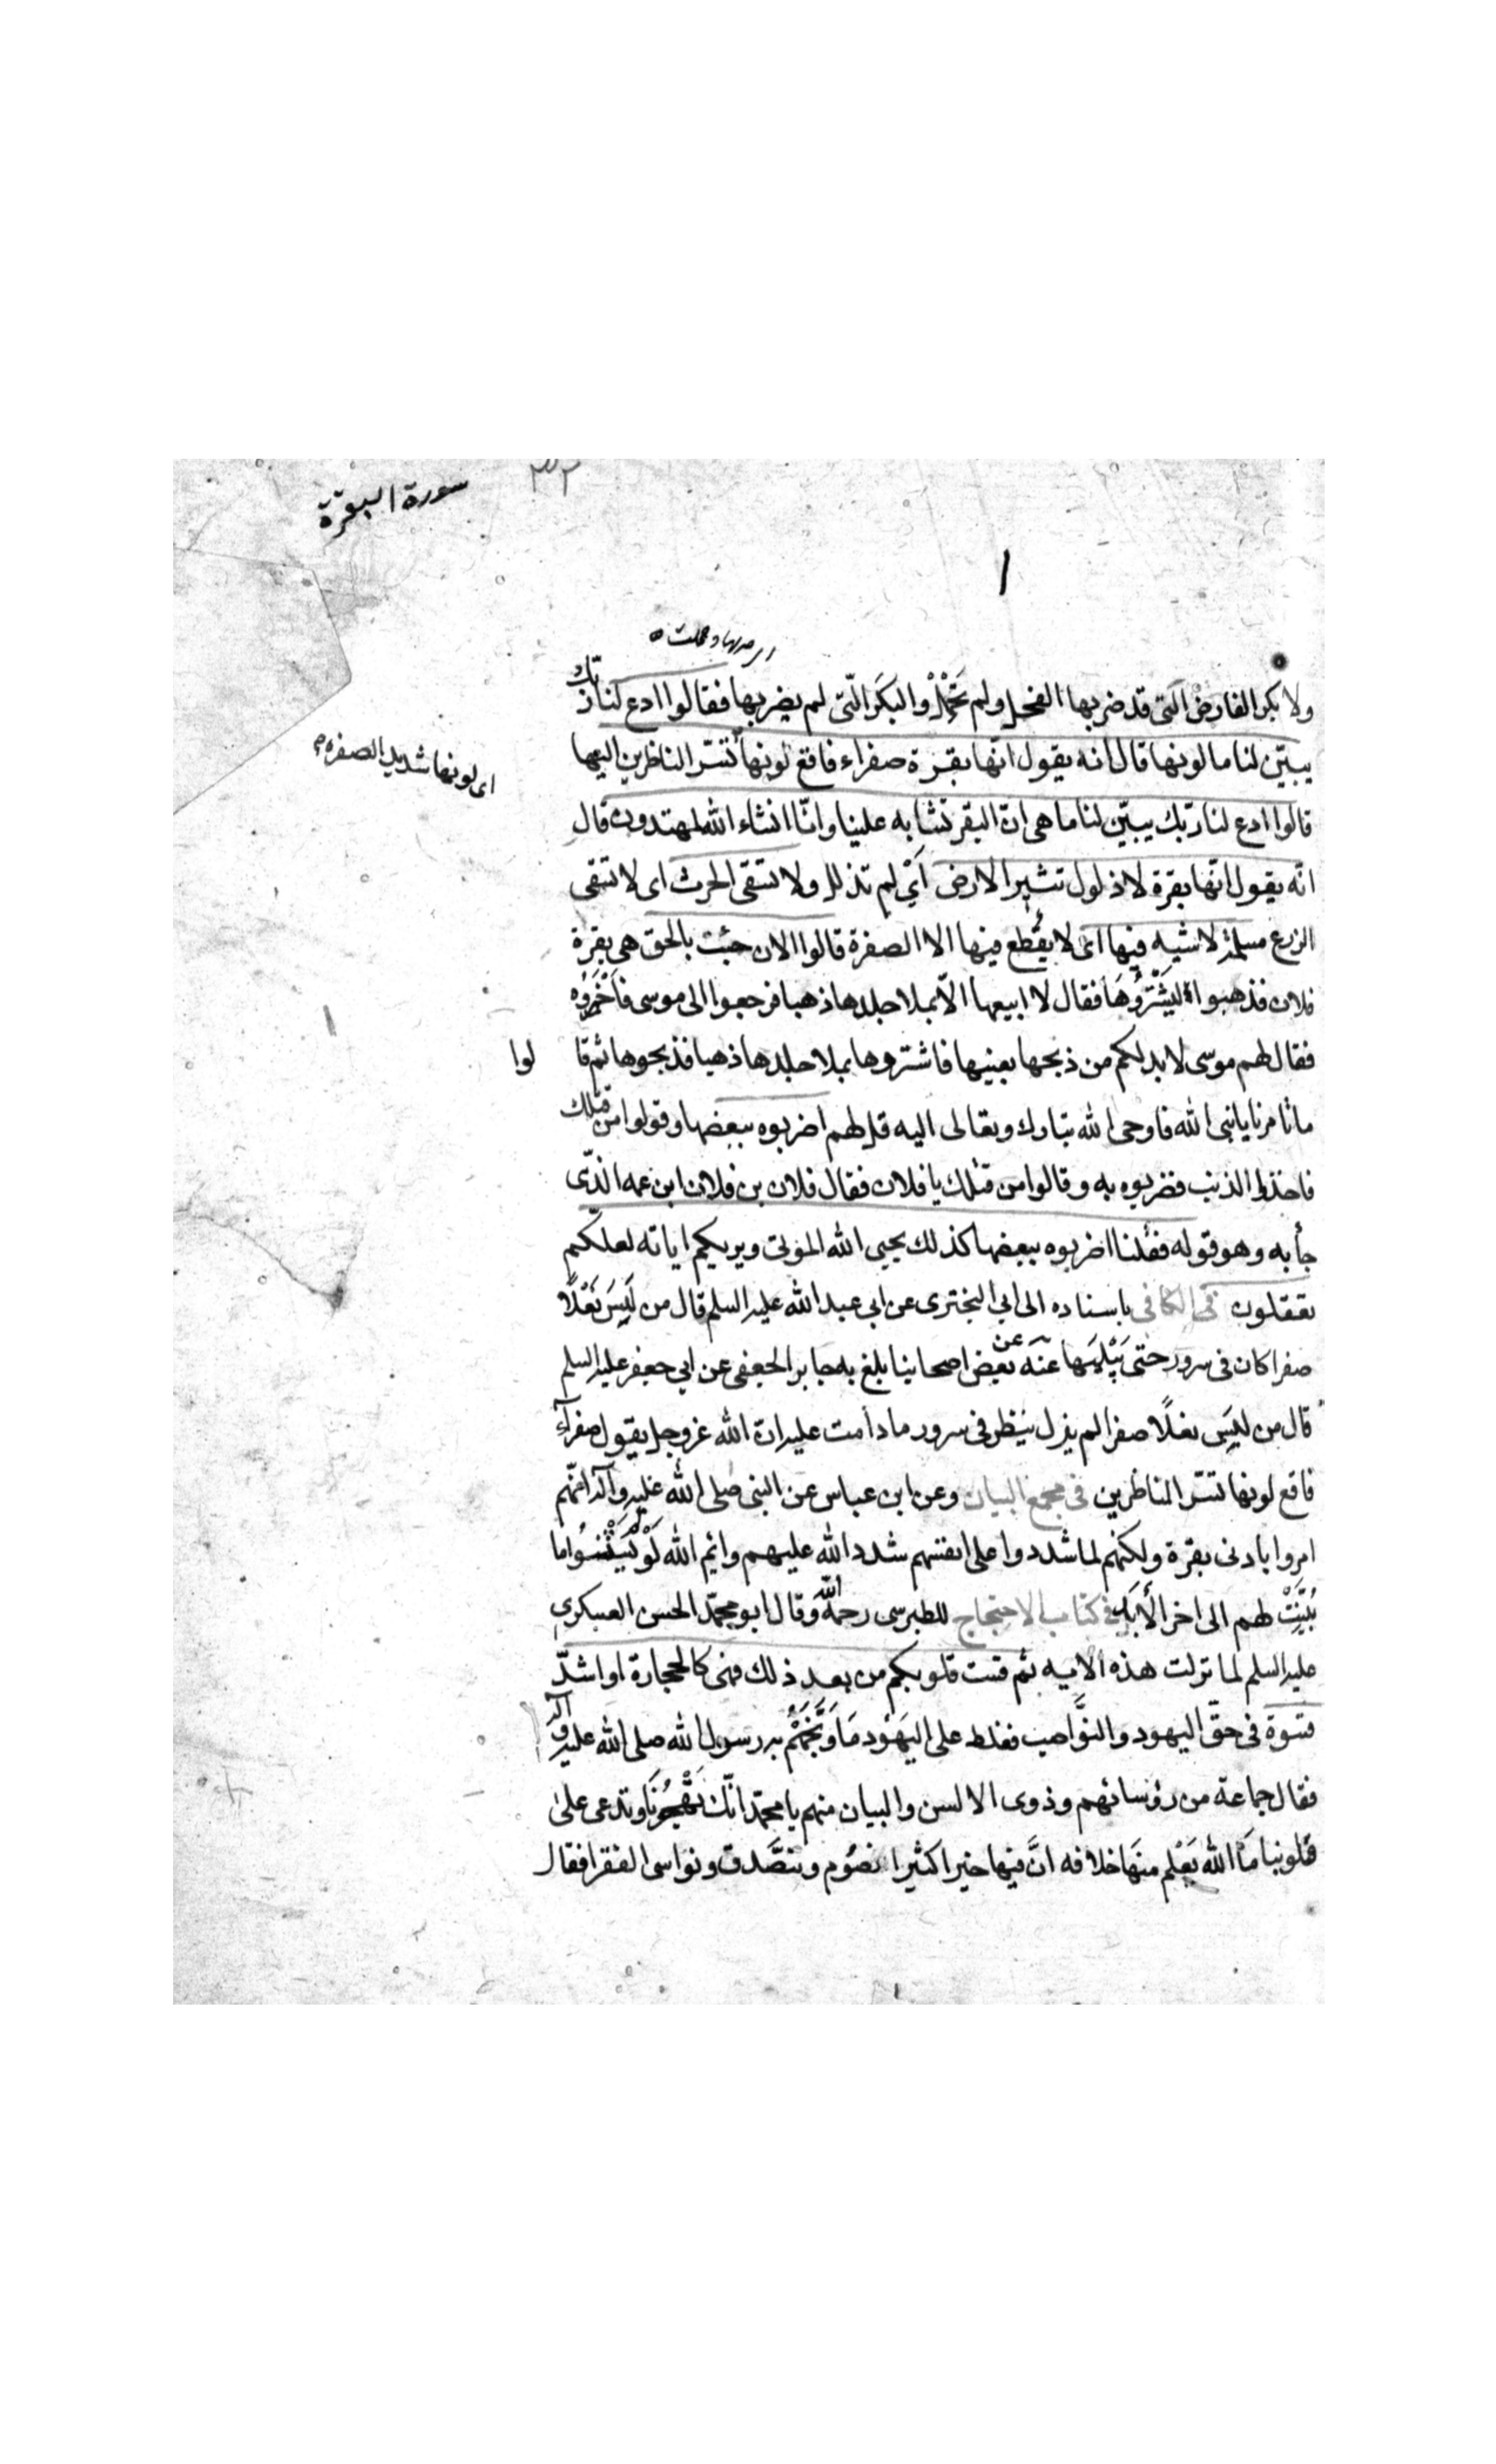 سورة البقرة
٣٢
ولا بكر الفارض الّتى قد ضربها الفحل ولم تَحْمِلْ والبكر الّتى لم يضربها فقالوا ادع لنا ربّك
يبيّن لنا ما لونها قال انه يقول انّها بقرة صفراء فاقع لونها تسّر الناظرين اليها
اى لونها شديد الصفره
قالوا ادع لنا ربّك يبيّن لنا ما هى انّ البقر تشابه علينا وانّا انشاء الله لمهتدون قال
انّه يقول انّها بقرة لا ذلول تشير الارض اَىْ لم تذلل ولا تسقى الحرث اى لا تسقى
الزرع مسلمة لا شيه فيها اى لا يُقطع فيها الا الصفرة قالوا الان جئت بالحق هى بقرة
فلان فذهبوا ليَشْتَرُوهَا فقال لا ابيعها الّا بملا جلدها ذهبا فرجعوا الى موسى فاَخْبَرُوه
فقال لهم موسى لا بد لكم من ذبحها بعينها فاشتروها بملا جلدها ذهبا فذبحوها ثم قا لوا
ما تامرنا يا نبى الله فاوحى الله تبارك وتعالى اليه قل لهم اضربوه ببعضها وقولوا من قتلك
فاخذوا الذنب فضربوه به وقالوا من قتلك يا فلان فقال فلان بن فلان ابن عمه الذّى
جأ به وهو قوله فقلنا اضربوه ببعضها كذلك يحيى الله الموتى ويريكم اياته لعلّكم
تعقلون فى الكافى باسناده الى ابى البخترى عن ابى عبد الله عليه السلم قال من لَبِسَ نَعْلًا
صفرا كان فى سرور حتى يُبْلِيَها عنه عن بعض اصحابنا بلغ به جابر الجعفى عن ابى جعفر عليه السلم
قال من لبس نعلًا صفرا لم يزل ينظر فى سرور ما دامت عليه انّ الله عزوجل يقول صفرآء
فاقع لونها تسّر الناظرين فى مجمع البيان وعن ابن عباس عن النبى صلى الله عليه وآله انّهم
امروا بادنى بقرة ولكنهم لما شددوا على انفسهم شدد الله عليهم وايم الله لَوْ لَمْ يَسْتَثْنُوا ما
بُيّنَتْ لهم الى اخر الأبَد فى كتاب الاحتجاج للطبرسى رحمه الله وقال ابو محمّد الحسن العسكرى
عليه السلم لما نزلت هذه الاميه ثم قست قلوبكم من بعد ذلك فهى كالحجارة او اشدّ
قسوة فى حقّ اليهود والنّواصب فغلظ على اليَهُود مَا وَبَّخَهُمْ به رسول الله صلى الله عليه وآله
فقال جماعة من رؤسائهم وذوى الالسن والبيان منهم يا محمّد انّك تَهْجُونَا وتدعى على
قلوبنا مَا الله يَعْلم منهَا خلافه انَّ فيها خيرا كثيرا نصُوم ونتصّدق ونواسى الفقرا فقال